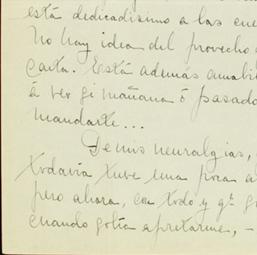 está dedicadísimo a las cue
No hay idea del provecho
carta. Está además amabi
á ver si mañana ó pasado
mandarte...
De mis neuralgias,
todavia tuve una poca a
pero ahora, con todo y qe
cuando solía apretarme, -